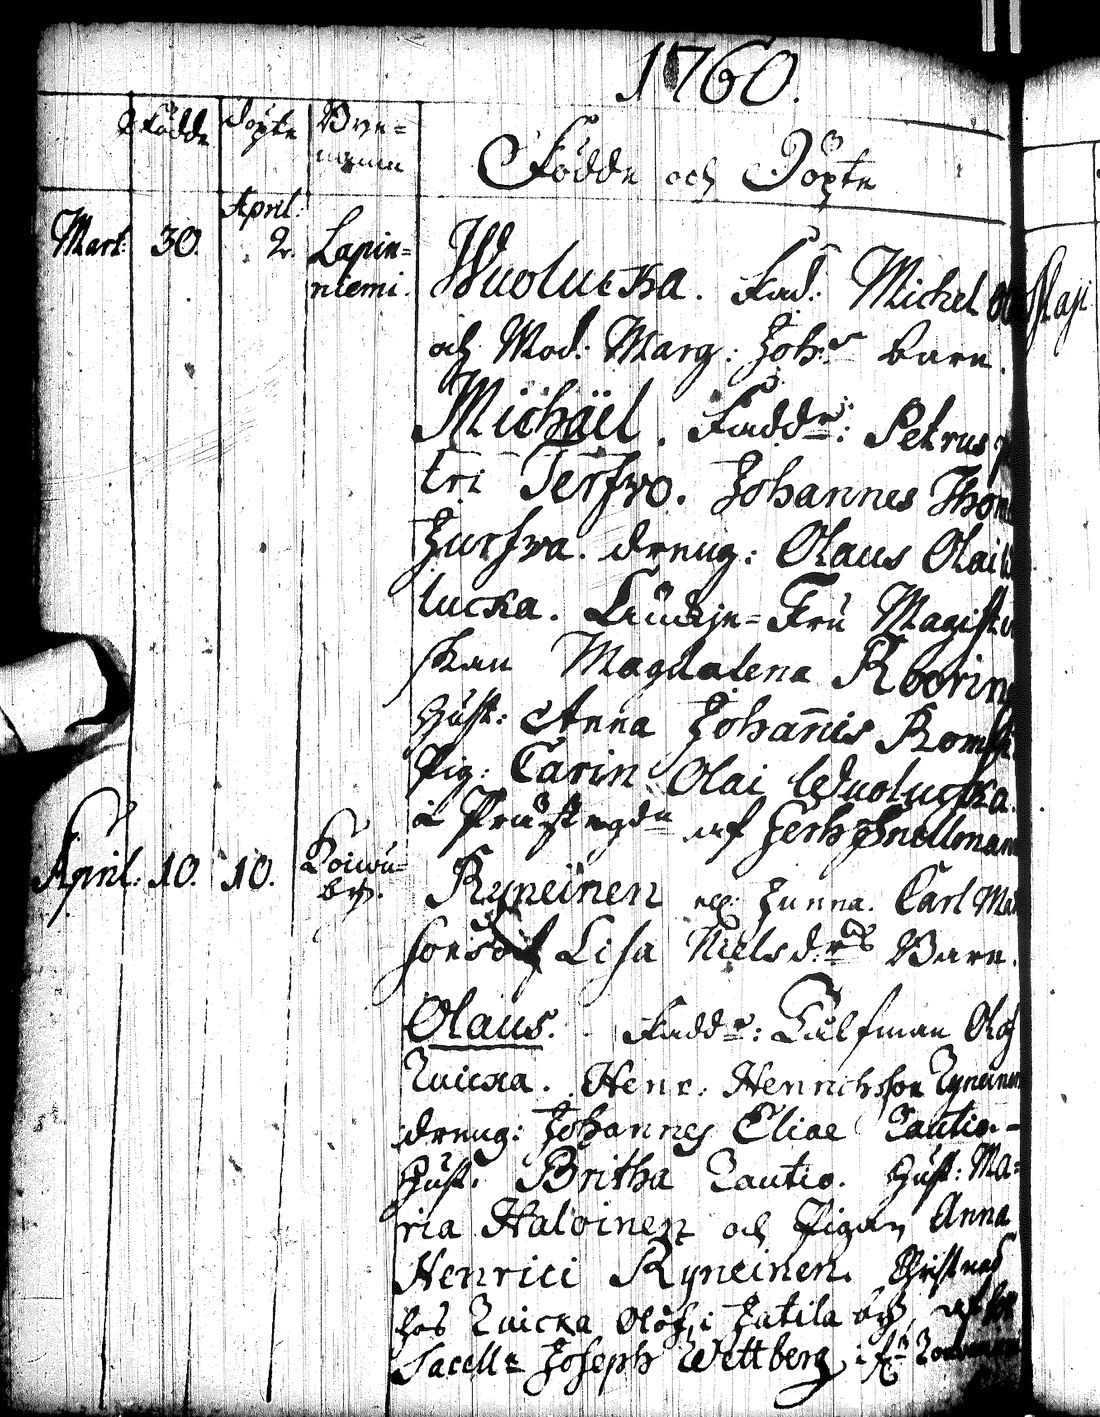 1760.
Födde Döpte Bye=
namn Födde och Döpte
April.
Mart: 30. 2. Lapin=
niemi. Wuolucka. Fad: Michel
och Mod: Marg: Joh:r barn.
Michäel. Fadd:r: Petrus
tri Terfwo. Johannes Thom
Jurfwa. dreng: Olaus Olai
lucka. Fru Magist
skan Magdalena Roorin
Hust: Anna Johannis Romp
Pig: Carin Olai Wuolucka.
af Jerh Snellman
April. 10. 10. Koiwu=
by. Ryneinen Carl Mat
son och Lisa Nielsd:rs Barn.
Olaus. Fadd:r: Tulfman Olof
Zuicka. Henr: Henrichsson Ryneinen
dreng: Johannes Eliae Tautio.
Hust. Britha Tautio. Hust: Ma=
ria Haloinen och Pigan Anna
Henrici Ryneinen. Christnad
hos Zuicka Olof, i Jutila by, af
Sacell: Joseph Wettberg,